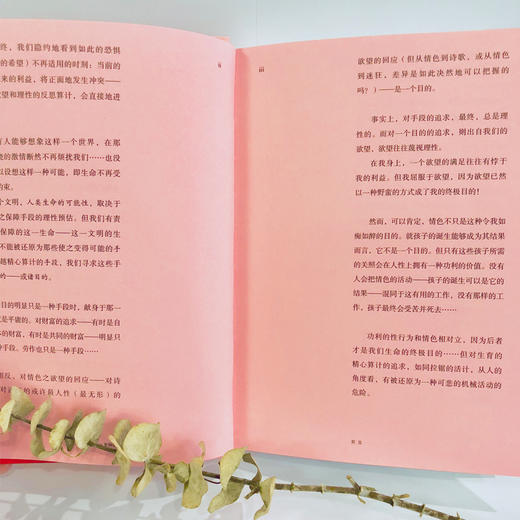 终，我们隐约地看到如此的恐惧
的希望）不再适用的时刻：当前的
来的利益，将正面地发生冲突——
望和理性的反思算计，会直接地进
ii
有人能够想象这样一个世界，在那
的激情断然不再烦扰我们……也没
设想这样一种可能，即生命不再受
约束。
个文明，人类生命的可能性，取决于
之保障手段的理性预估。但我们有责
保障的这一生命——这一文明的生
不能被还原为那些使之变得可能的手
越精心算计的手段，我们寻求这些手
——或诸目的。
目的明显只是一种手段时，献身于那一
就是平庸的。对财富的追求——有时是自
体的财富，有时是共同的财富——明显只
手段。劳作也只是一种手段……
相反，对情色之欲望的回应——对诗
的或许最人性（最无形）的
iii
欲望的回应（但从情色到诗歌，或从情色
到迷狂，差异是如此决然地可以把握的
吗？）——是一个目的。
事实上，对手段的追求，最终，总是理
性的。而对一个目的的追求，则出自我们的
欲望，欲望往往蔑视理性。
在我身上，一个欲望的满足往往有悖于
我的利益。但我屈服于欲望，因为欲望已然
以一种野蛮的方式成了我的终极目的！
然而，可以肯定，情色不只是这种令我如
痴如醉的目的。就孩子的诞生能够成为其结果
而言，它不是一个目的。但只有这些孩子所需
的关照会在人性上拥有一种功利的价值。没有
人会把情色的活动——孩子的诞生可以是它的
结果——混同于这有用的工作，没有那样的工
作，孩子最终会受苦并死去……
功利的性行为和情色相对立，因为后者
才是我们生命的终极目的……但对生育的
精心算计的追求，如同拉锯的活计，从人的
角度看，有被还原为一种可悲的机械活动的
危险。